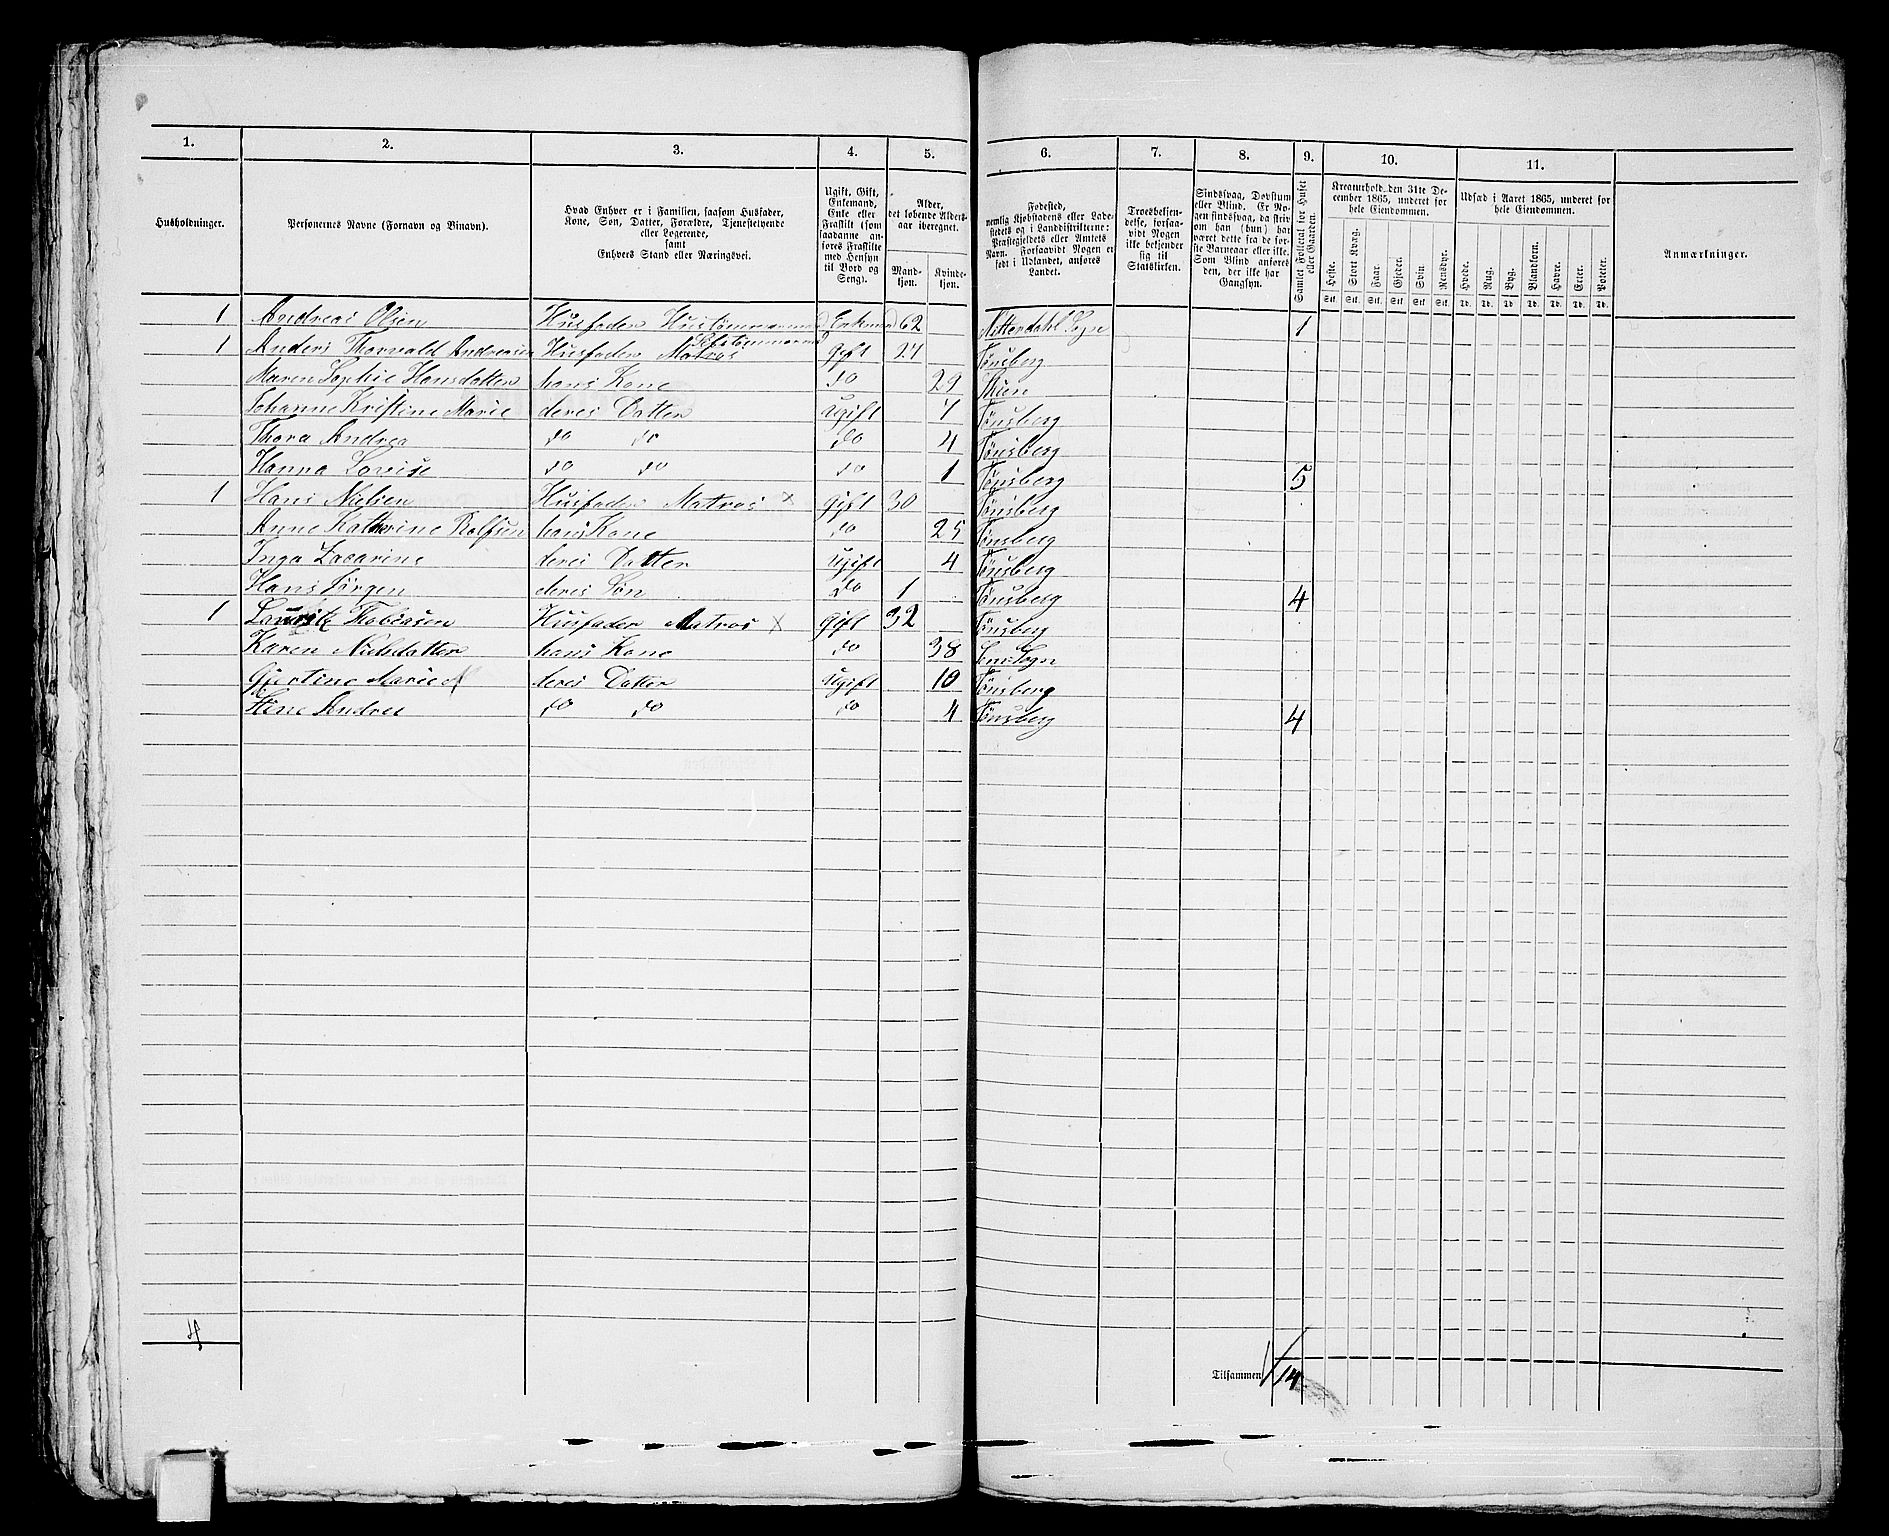 1. 2. 3. 4. 5. 6. 7. 8. 9. 10. 11.
Husholdninger.
Personernes Navne (Fornavn og Binavn).
Hvad Enhver er i Familien, saasom Husfader,
Kone, Søn, Datter, Forældre, Tjenestetyende
eller Logerende,
samt
Enhvers Stand eller Næringsvei.
Ugift, Gift,
Enkemand,
Enke eller
Fraskilt (som
saadanne an-
føres Fraskilte
med Hensyn
til Bord og
Seng).
Alder,
det løbende Alders-
aar iberegnet.
Mand-
kjøn.
Kvinde-
kjøn.
Fødested,
nemlig Kjøbstadens eller Lade-
stedets og i Landdistrikterne:
Præstegjeldets eller Amtets
Navn. Forsaavidt Nogen er
født i Udlandet, anføres
Landet.
Troesbekjen-
delse, forsaa-
vidt Nogen
ikke bekjender
sig til
Statskirken.
Sindssvag, Døvstum
eller Blind. Er No-
gen sindssvag, da skriv
om han (hun) har
været dette fra de før-
ste Barneaar eller ikke.
Som Blind anføres
den, der ikke har
Gangsyn.
Samlet Folketal for Huset
eller Gaarden.
Kreaturhold den 31te De-
cember 1865, underet for
hele Eiendommen.
Heste. Stort Kvæg. Faar. Gjeder. Svin Rensdyr.
Stk. Stk. Stk. Stk. Stk. Stk.
Udsæd i Aaret 1865, underet for
hele Eiendommen.
Hvede. Rug. Byg. Blandkorn. Havre. Erter. Poteter.
Td. Td. Td. Td. Td. Td. Td.
Anmærkninger.
1 Andreas Olsen Husfader Hustømmermand Enkemand 62 Nitterdahl Sogn 1
1 Anders Thorvald Andreasen Husfader Matros Gift 27 Tønsberg
Maren Sophie Hansdatter hans Kone do 29 Skien
Johanne Kristine Marie deres Datter Ugift 7 Tønsberg
Thora Andrea do do do 4 Tønsberg
Hanna Lovise do do do 1 Tønsberg 5
1 Hans Nielsen Husfader Matros x Gift 30 Tønsberg
Anne Kathrine Rolfsen hans Kone do 25 Tønsberg
Inga Zacarine deres Datter Ugift 4 Tønsberg
Hans Jørgen deres Søn do 1 Tønsberg 4
1 Lauritz Thobiasen Husfader Matros x Gift 32 Tønsberg
Karen Nielsdatter hans Kone do 38 Sem Sogn
Gjertine Marie deres Datter Ugift 10 Tønsberg
Stine Andrea do do do 4 Tønsberg 4
4
Tilsammen 14